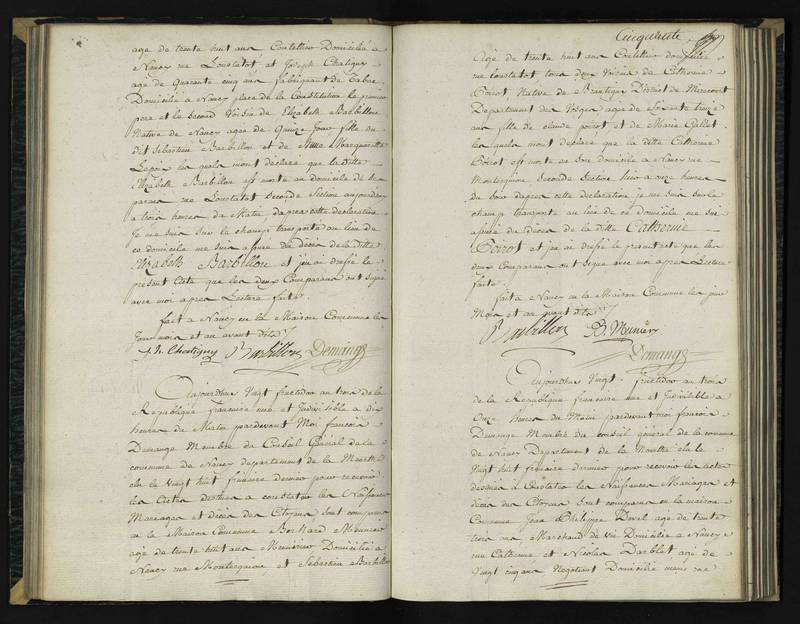 age de trente huit ans Coutellier Domicilié a
Nancy rue Loustatot et Joseph Chatigny
age de Quarante cinq ans fabriquant de Tabac
Domicilié a Nancy place de la Constitution le premier
pere et le second Voisin de Elizabeth Barbillon
Native de Nancy agee de Quinze Jour fille du
dit Sebastien Barbillon et de Marguerite
Lepin les quels mont déclaré que la ditte
Elizabeth Barbillon est morte au domicile de ses
parens rue Loustatot seconde Section aujourdhuy
a trois heures du Matin dapres cette déclaration
Je me suis sur le champ transporté au lieu de
ce domicile me suis assuré du décès de la ditte
Elizabeth Barbillon et j'en ai dressé le
présent Acte que les deux Comparans ont signé
avec moi apres Lecture faite
fait a Nancy en la Maison Commune les
Jour mois et an avant dits
Chatigny Barbillon Demange
Aujourdhuy Vingt fructidor an trois de la
République francaise une et Indivisible a dix
heures du Matin pardevant Moi francois
Demange Membre du Conseil Général de la
commune de Nancy departement de la Meurthe
élu le Vingt huit frimaire dernier pour recevoir
les Actes destinés a constater les Naissances
Mariages et décès des Citoyens sont comparus
en la Maison Commune Bernard Meunier
age de trente huit ans Menuisier Domicilié a
Nancy rue Montesquieu et Sebastien Barbillon
Cinquante
Agé de trente huit ans Coutellier domicilié
rue Loustatot tous deux Voisins de Catherine
Poirot Native de District de Mirecourt
Departement des Vosges agée de
ans fille de claude poirot et de Marie Gallet
les quels mont déclaré que la ditte Catherine
Poirot est morte en son domicile a Nancy rue
Montesquieu seconde Section hier a onze heures
du Soir dapres cette déclaration je me suis sur le
champ transporté au lieu de ce domicile me suis
assuré du Décès de la ditte Catherine
Poirot et j'en ai dressé le présent acte que les
deux Comparans ont signé avec moi apres Lecture
faite
fait a Nancy en la Maison Commune les jour
Mois et an avant dits
Barbillon B. Meunier
Demange
Aujourdhuy Vingt fructidor an trois
de la République francaise une et Indivisible a
Onze heures du Matin pardevant moi francois
Demange Membre du conseil général de la commune
de Nancy Departement de la Meurthe élu le
Vingt huit frimaire dernier pour recevoir les actes
destinés a Constater les Naissances Mariages et
décès des Citoyens sont comparus en la maison
Commune Jean Philippe age de trente
trois ans Marchand de Vin Domicilié a Nancy
rue Catherine et Nicolas Darblot agé de
Vingt cinq ans Negotiant Domicilié meme rue